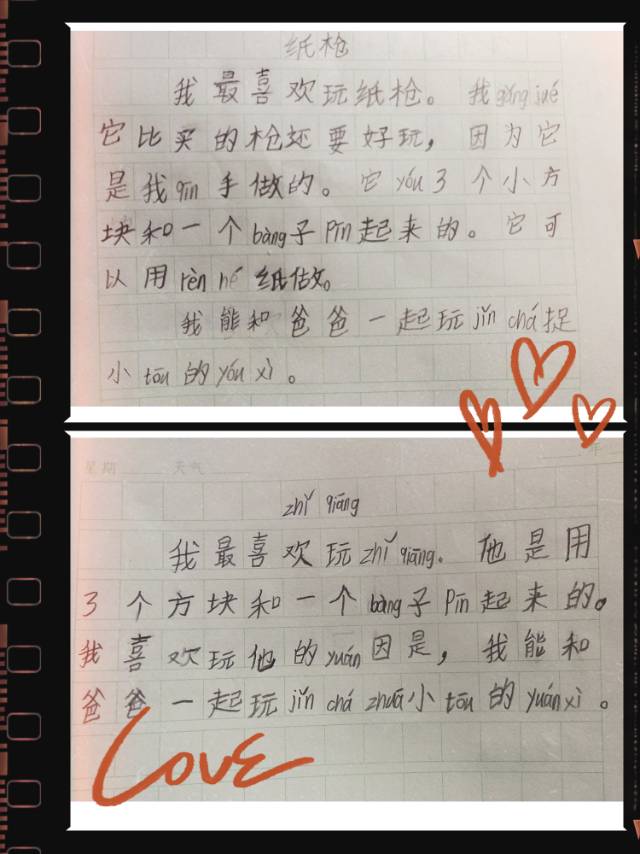 纸枪
我最喜欢玩纸枪。我gǎng jué
它比买的枪还要好玩，因为它
是我qīn手做的。它yóu 3个小方
块和一个bàng子Pīn起来的。它可
以用rèn hé纸做。
我能和爸爸一起玩jǐn chá捉
小tōu的yóu xì。
星期 天气
年
zhǐ qiāng
我最喜欢玩zhǐ qiāng. 他是用
3个方块和一个bàng子Pīn起来的。
我喜欢玩他的yuán因是，我能和
爸爸一起玩jǐn chá zhuā小tōu的yuánxì。
LOVE